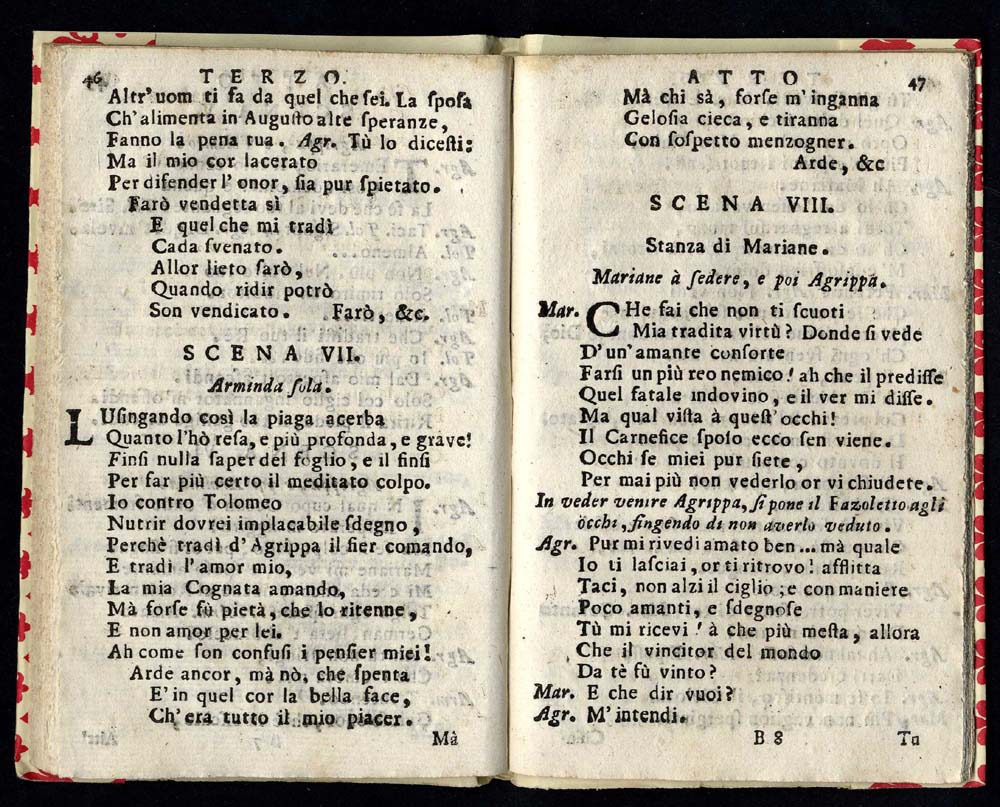 46 TERZO.
Altr'uom ti fa da quel che sei. La ſpoſa
Ch'alimenta in Auguſto alte ſperanze,
Fanno la pena tua. Agr. Tù lo diceſti:
Ma il mio cor lacerato
Per difender l'onor, ſia pur ſpietato.
Farò vendetta sì
E quel che mi tradì
Cada ſvenato.
Allor lieto ſarò,
Quando ridir potrò
Son vendicato. Farò, &c.
SCENA VII.
Arminda ſola.
LUſingando così la piaga acerba
Quanto l'hò reſa, e più profonda, e grave!
Finſi nulla ſaper del foglio, e il finſi
Per far più certo il meditato colpo.
Io contro Tolomeo
Nutrir dovrei implacabile ſdegno,
Perchè tradì d'Agrippa il fier comando,
E tradì l'amor mio,
La mia Cognata amando,
Mà forſe fù pietà, che lo ritenne,
E non amor per lei.
Ah come ſon confuſi i penſier miei!
Arde ancor, mà nò, che ſpenta
E' in quel cor la bella face,
Ch'era tutto il mio piacer.
Mà
ATTO 47
Mà chi sà, forſe m'inganna
Geloſia cieca, e tiranna
Con ſoſpetto menzogner.
Arde, &c
SCENA VIII.
Stanza di Mariane.
Mariane à ſedere, e poi Agrippa.
Mar. CHe fai che non ti ſcuoti
Mia tradita virtù? Donde ſi vede
D'un'amante conſorte
Farſi un più reo nemico! ah che il prediſſe
Quel fatale indovino, e il ver mi diſſe.
Ma qual viſta à queſt'occhi!
Il Carnefice ſpoſo ecco ſen viene.
Occhi ſe miei pur ſiete,
Per mai più non vederlo or vi chiudete.
In veder venire Agrippa, ſi pone il Fazoletto agli
occhi, fingendo di non averlo veduto.
Agr. Pur mi rivedi amato ben... mà quale
Io ti laſciai, or ti ritrovo! afflitta
Taci, non alzi il ciglio; e con maniere
Poco amanti, e ſdegnoſe
Tù mi ricevi! à che più meſta, allora
Che il vincitor del mondo
Da tè fù vinto?
Mar. E che dir vuoi?
Agr. M'intendi.
B 8 Tu